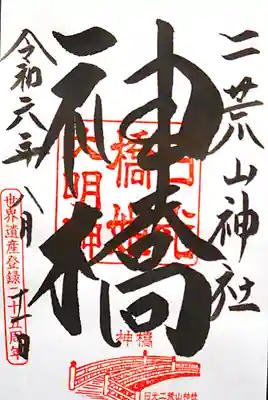 二荒山神社
神橋
令和六年八月二十一日
日光
橋姫
大明神
世界遺産登録二十五周年
神橋
日光二荒山神社